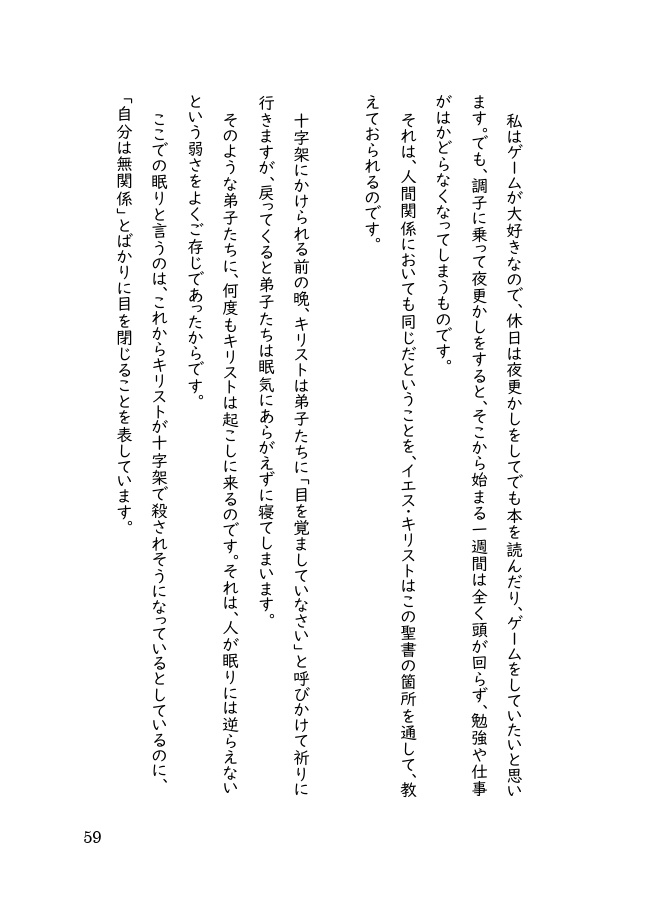 私はゲームが大好きなので、休日は夜更かしをしてでも本を読んだり、ゲームをしていたいと思い
ます。でも、調子に乗って夜更かしをすると、そこから始まる一週間は全く頭が回らず、勉強や仕事
がはかどらなくなってしまうものです。
それは、人間関係においても同じだということを、イエス・キリストはこの聖書の箇所を通して、教
えておられるのです。
十字架にかけられる前の晩、キリストは弟子たちに「目を覚ましていなさい」と呼びかけて祈りに
行きますが、戻ってくると弟子たちは眠気にあらがえずに寝てしまいます。
そのような弟子たちに、何度もキリストは起こしに来るのです。それは、人が眠りには逆らえない
という弱さをよくご存じであったからです。
ここでの眠りと言うのは、これからキリストが十字架で殺されそうになっているとしているのに、
「自分は無関係」とばかりに目を閉じることを表しています。
59